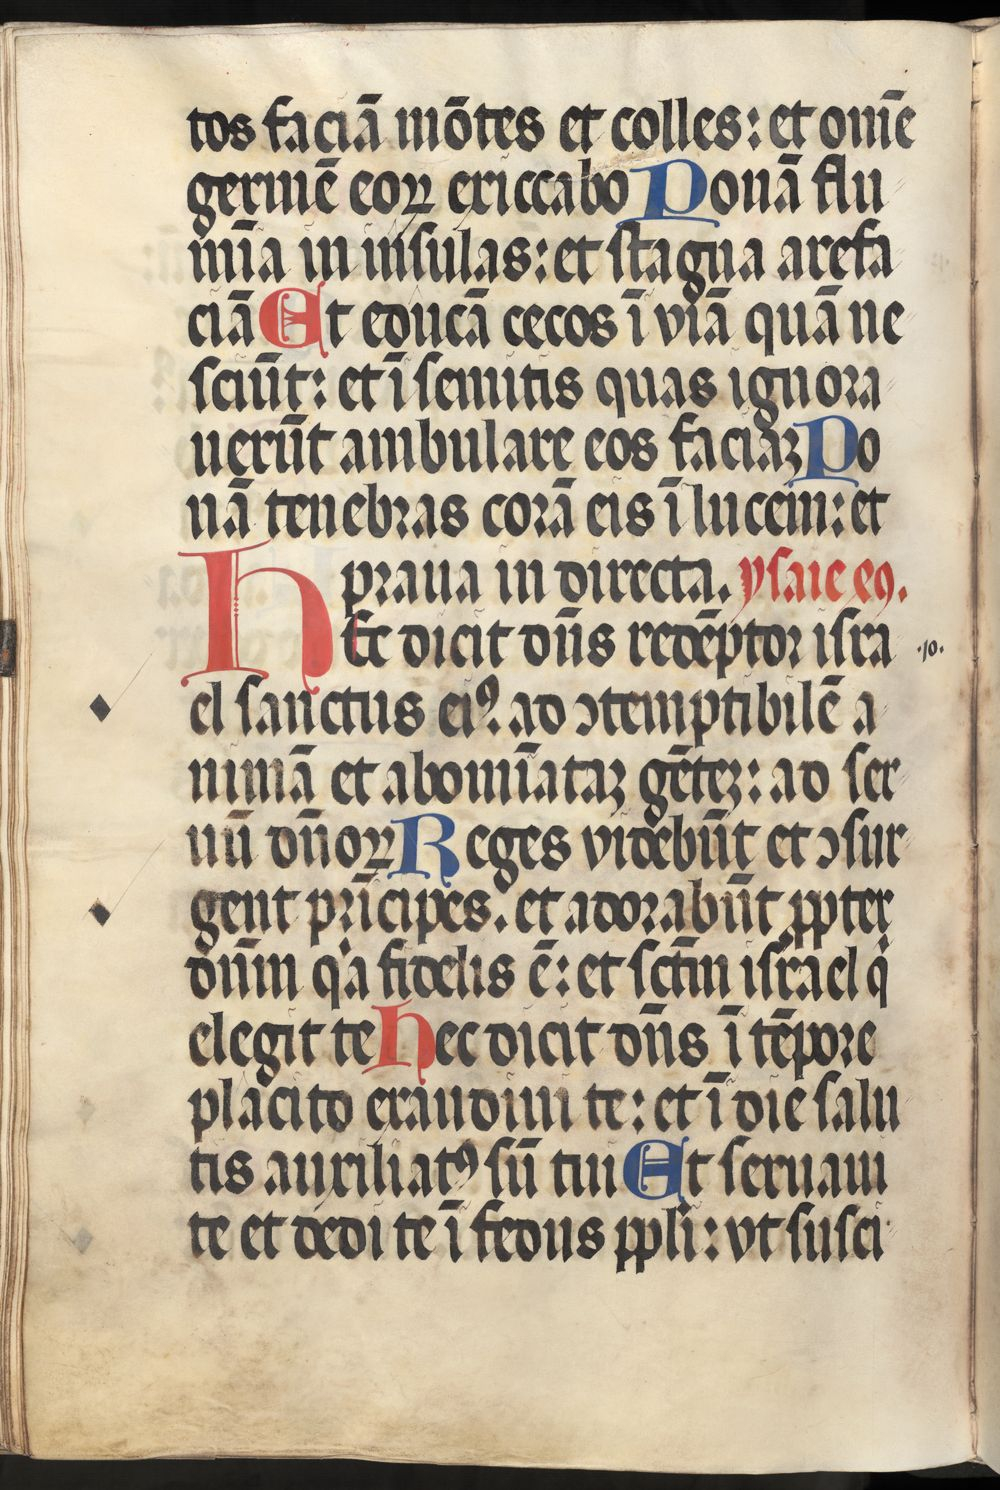 tos faciā mōtes et colles: et om̄e
germē eoꝝ exiccabo Ponā flu
mīa in insulas: et stagna arefa
ciā Et educā cecos ī viā quā ne
sciūt: et ī semitis quas ignora
uerūt ambulare eos faciaꝫ Po
nā tenebras corā eis ī lucem: et
praua in directa. ysaie eꝯ.
HEc dicit dn̄s redēptor isra
·10·
el sanctus eiꝰ. ad ↄtemptibilē a
nimā et abomīataꝫ gēteꝫ: ad ser
uū dn̄oꝝ Reges videbūt et ↄsur
gent prīcipes. et adorabūt ꝓpter
dn̄m qͥa fidelis ē: et sctm̄ israel qͥ
elegit te Hec dicit dn̄s ī tēpore
placito exaudiui te: et ī die salu
tis auxiliatꝰ sū tui Et seruaui
te et dedi te ī fedus ppli: vt susci